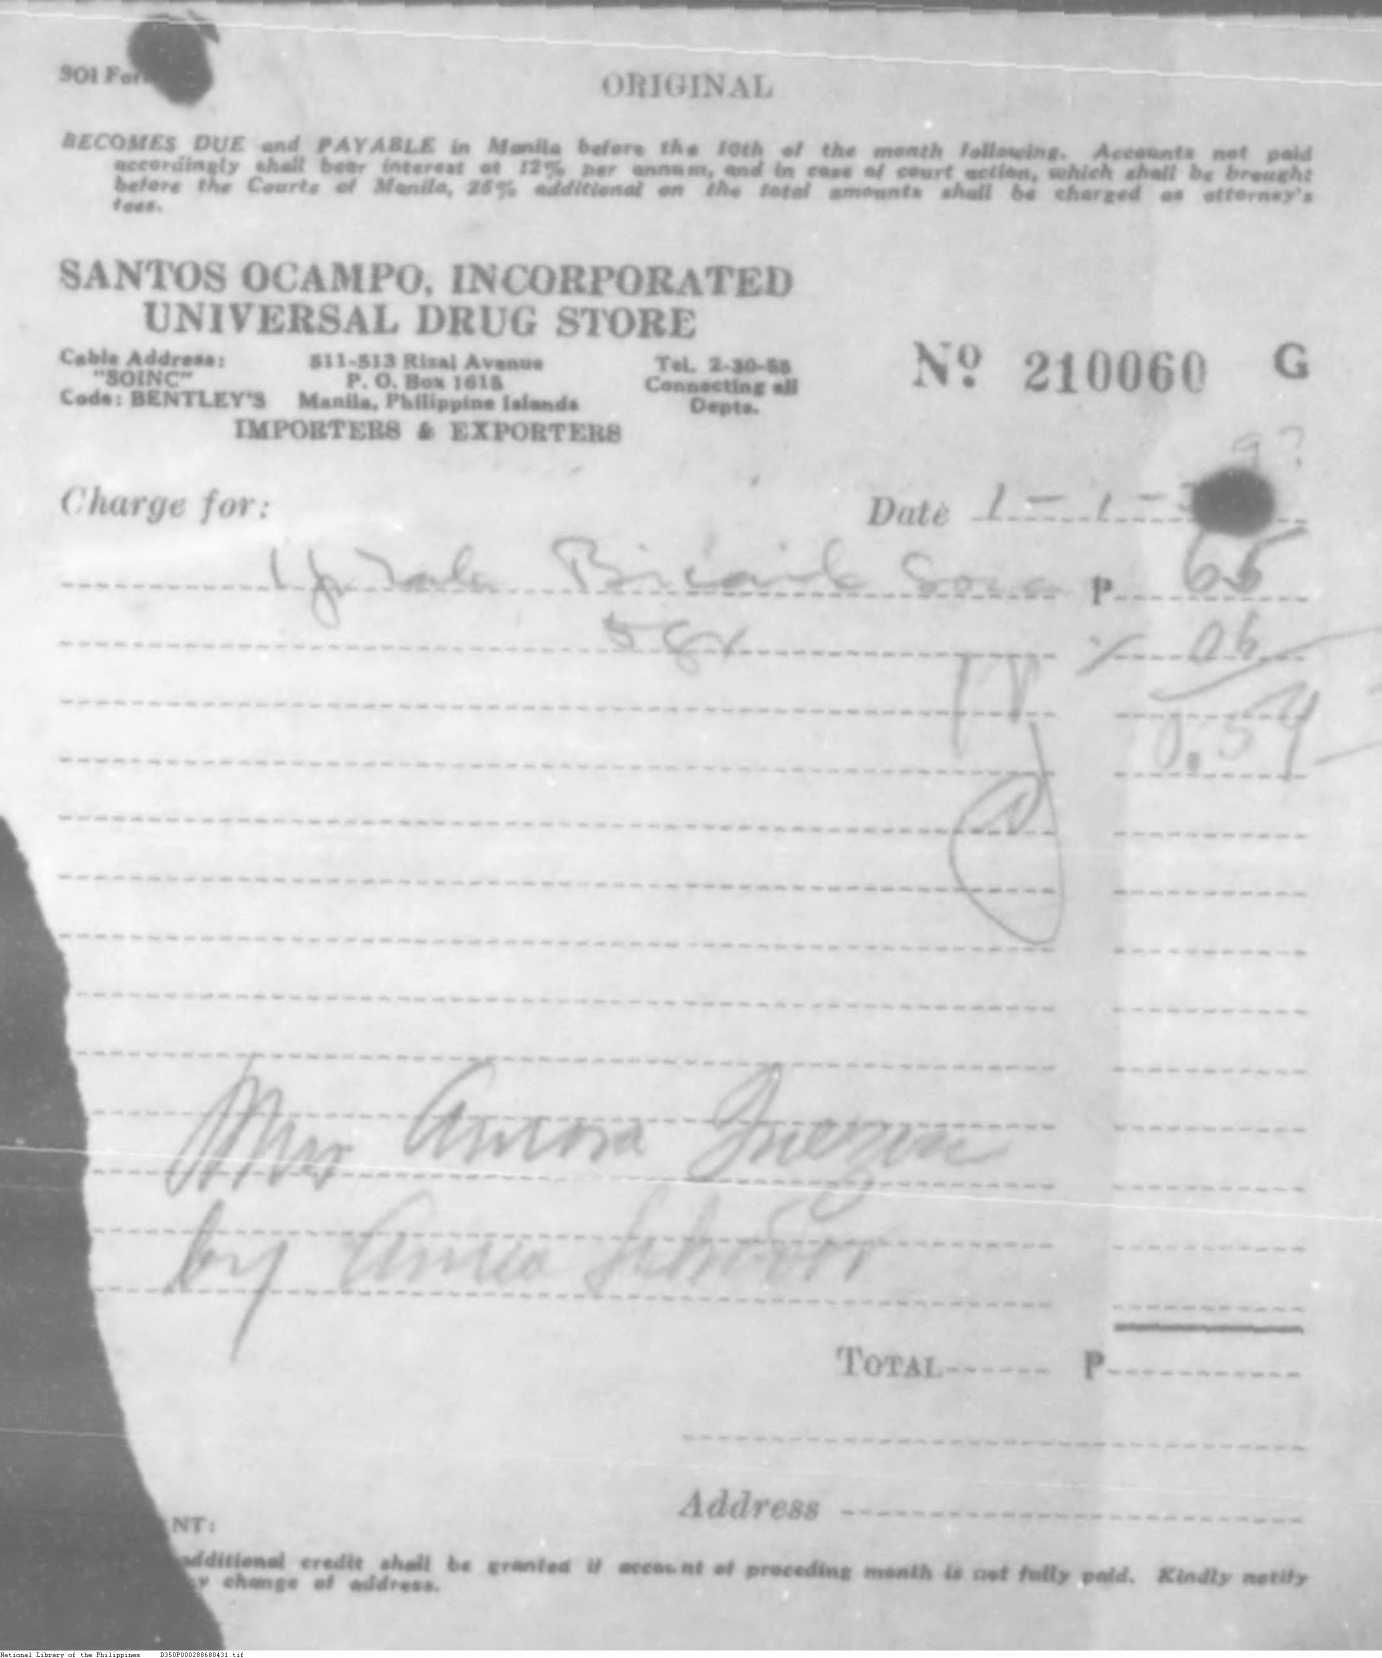 SOI For
ORIGINAL
BECOMES DUE and PAYABLE in Manila before the 10th of the month following. Accounts not paid
accordingly shall bear interest at 12% per annum, and in case of court action, which shall be brought
before the Courts of Manila, 25% additional on the total amounts shall be charged as attorney's
fees.
SANTOS OCAMPO, INCORPORATED
UNIVERSAL DRUG STORE
Cable Address: 511-513 Rizal Avenue Tel. 2-30-55
"SOINC" P. O. Box 1615 Connecting all
Code: BENTLEY'S Manila, Philippine Islands Depts.
IMPORTERS & EXPORTERS
Nº 210060 G
Charge for:
Date 1-1-
Soda P 65
5 gr 06
0.59
Mrs Aurora Quezon
by
TOTAL P
Address
NT:
additional credit shall be granted if account of preceding month is not fully paid. Kindly notify
y change of address.
National Library of the Philippines D350P000288688431.tif